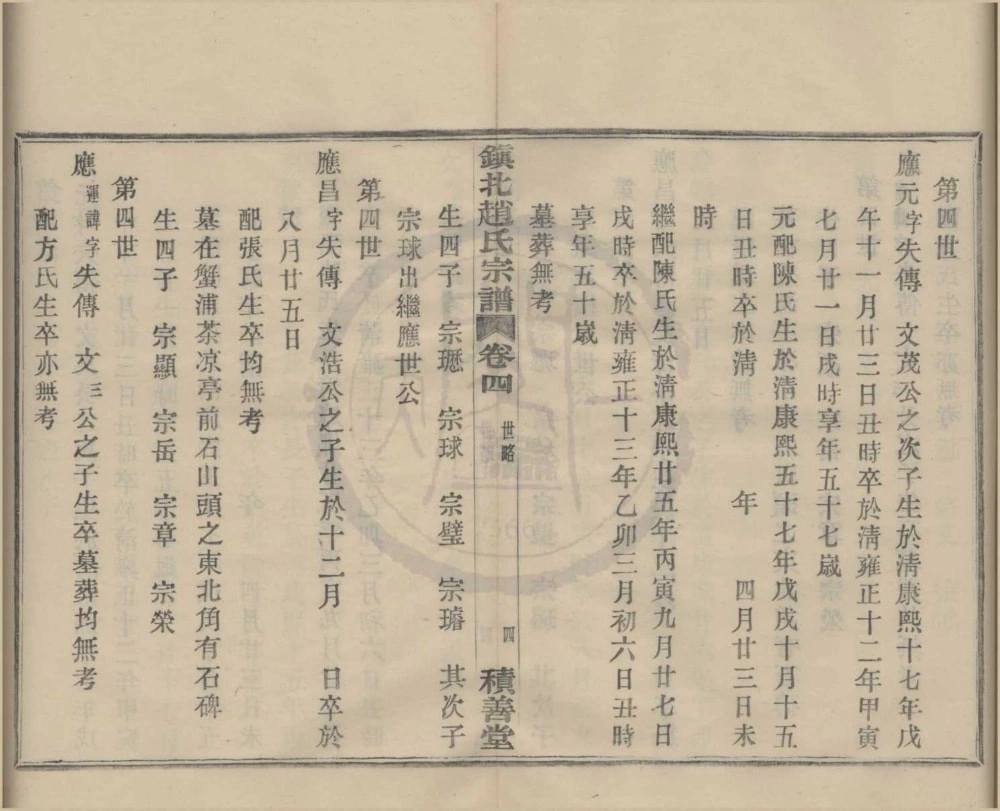 第四世
應元字失傳　文茂公之次子生於清康熙十七年戊
午十一月廿三日丑時卒於清雍正十二年甲寅
七月廿一日戌時享年五十七歲
元配陳氏生於清康熙五十七年戊戌十月十五
日丑時卒於清　年　四月廿三日未
時
繼配陳氏生於清康熙廿五年丙寅九月廿七日
戌時卒於清雍正十三年乙卯三月初六日丑時
享年五十歲
墓葬無考
鎮北趙氏宗譜　卷四　世略　四　積善堂
生四子　宗瑟　宗球　宗璧　宗璿　其次子
宗球出繼應世公
第四世
應昌字失傳　文浩公之子生於十二月　日卒於
八月廿五日
配張氏生卒均無考
墓在蟹浦茶凉亭前石山頭之東北角有石碑
生四子　宗顯　宗岳　宗章　宗榮
第四世
應運諱字失傳　文三公之子生卒墓葬均無考
配方氏生卒亦無考